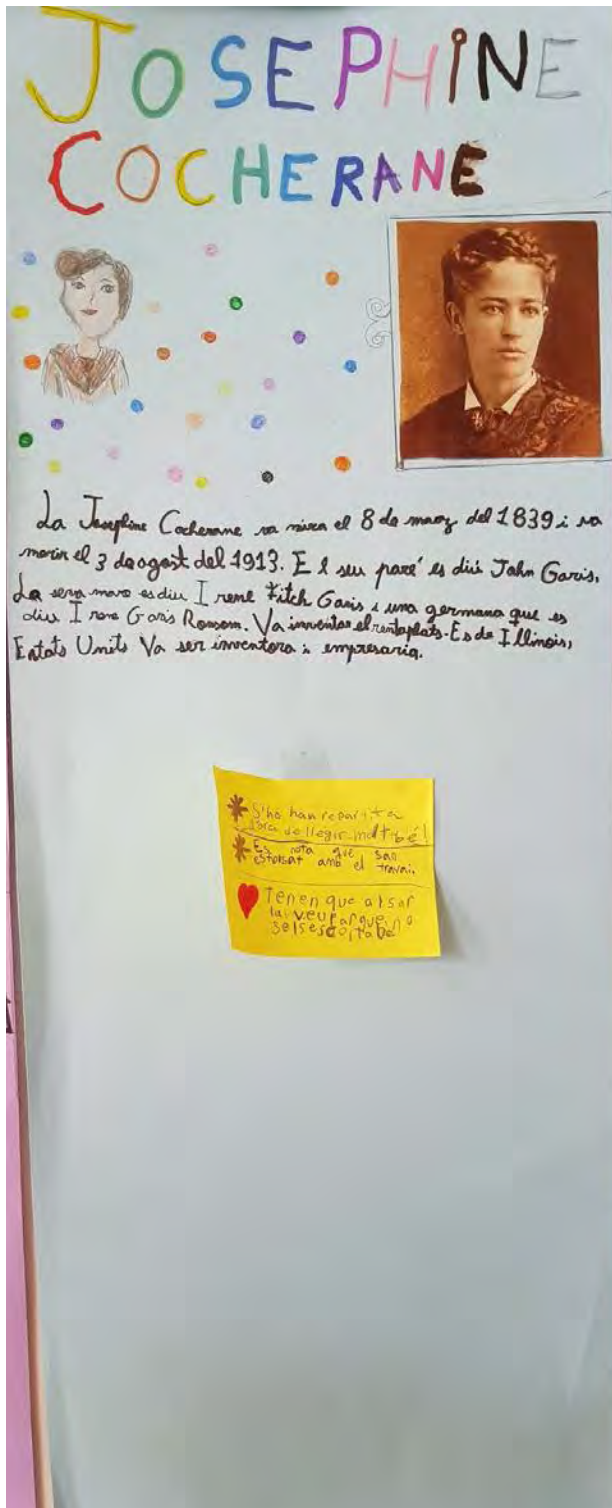 JOSEPHINE
COCHERANE
La Josephine Cocherane va nixea el 8 de març del 1839 i va
morir el 3 de agost del 1913. El seu pare es diu John Garis,
La seva mare es diu Irene Fitch Garis i una germana que es
diu Irene Garis Ransom. Va inventar el rentaplats. Es de Illinois,
Estats Units Va ser inventora i empresaria.
S'ho han repartit a
l'hora de llegir molt bé!
Es nota que san
esforsat amb el travai.
Tenen que alsar
la veu parque no
sels escoltaba